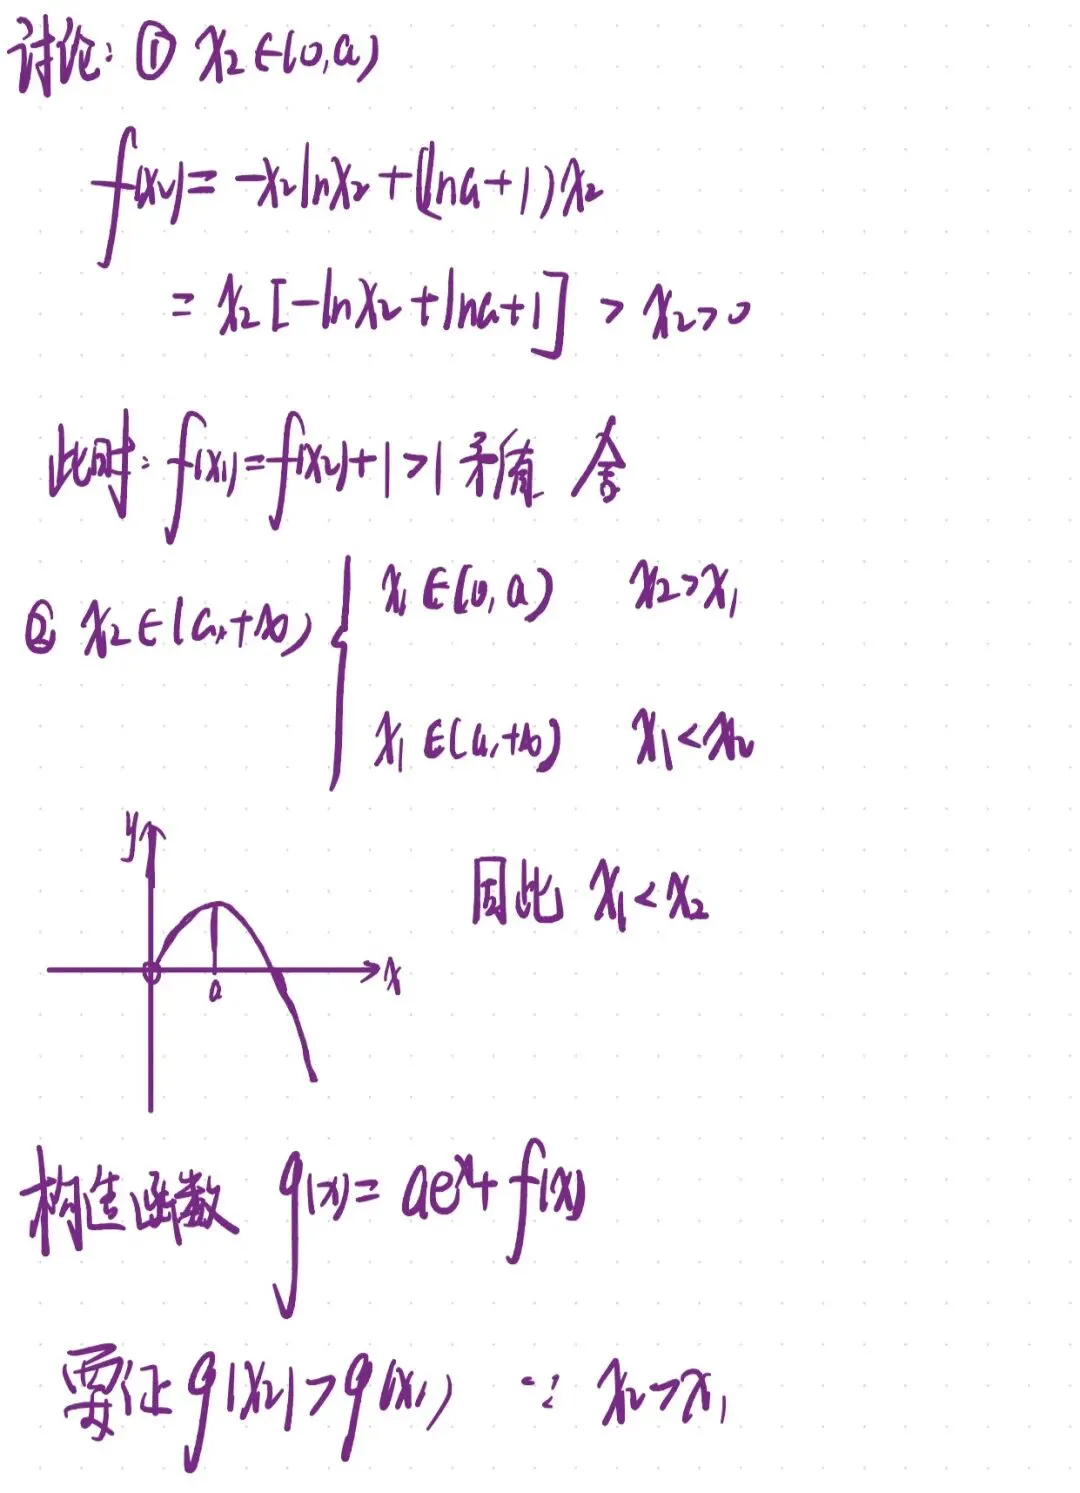 讨论: ① x₂∈(0,a)
f(x₂)= -x₂lnx₂+(lna+1)x₂
= x₂[-lnx₂+lna+1] > x₂>0
此时: f(x₁)=f(x₂)+1>1 矛盾 舍
② x₂∈(a,+∞) { x₁∈(0,a) x₂>x₁
x₁∈(a,+∞) x₁<x₂
y
因此 x₁<x₂
a x
构造函数 g(x)= aeˣ+f(x)
要证 g(x₂)>g(x₁) ∵ x₂>x₁